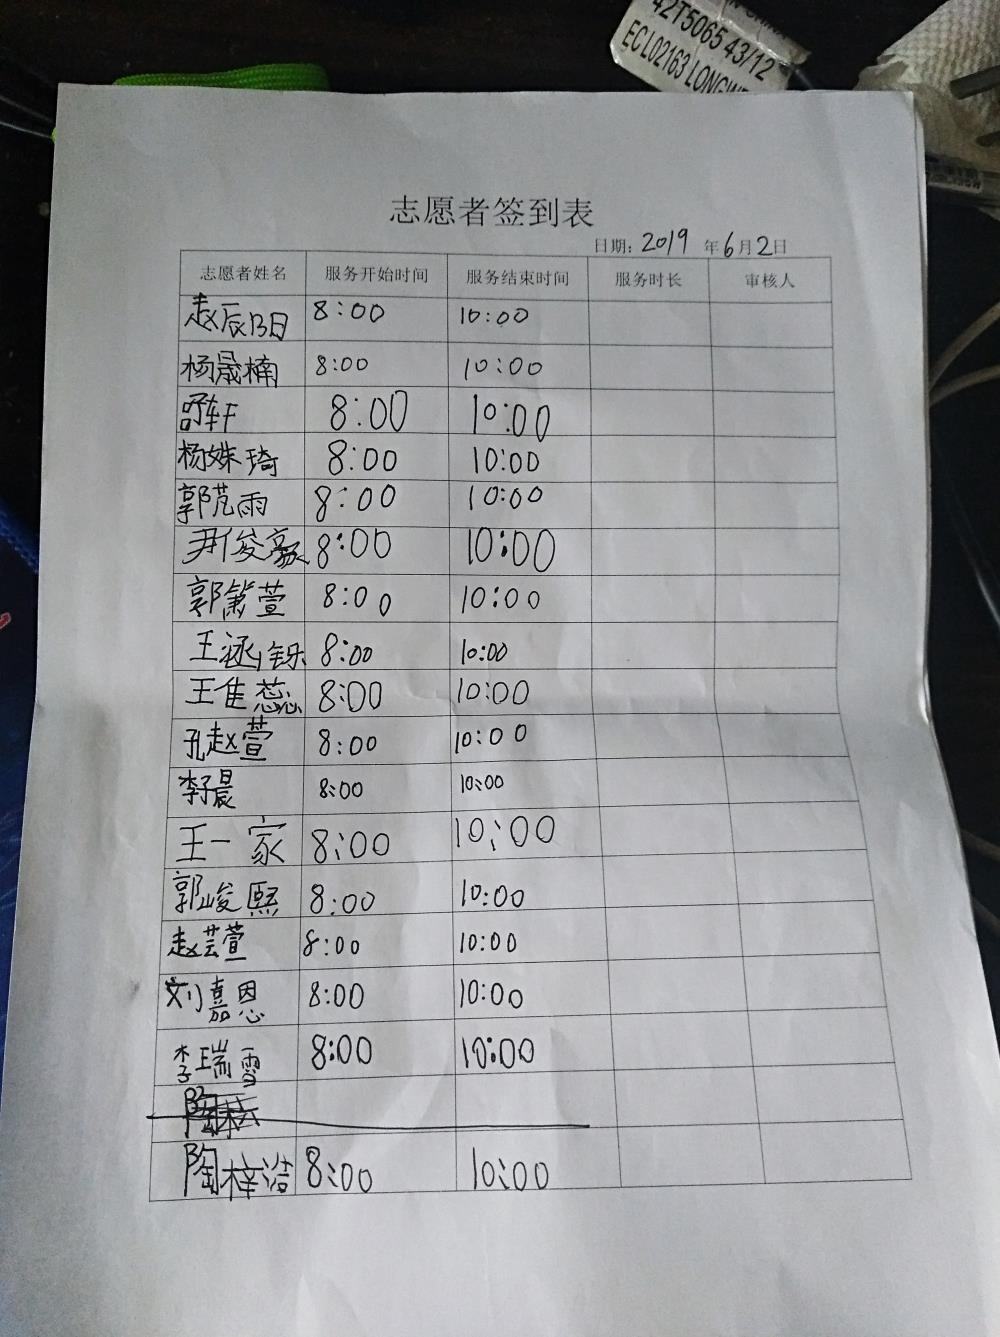 42T5065 43/12
ECL02163 LONGW
志愿者签到表
日期: 2019 年6月2日
志愿者姓名 服务开始时间 服务结束时间 服务时长 审核人
赵辰阳 8:00 10:00
杨晟楠 8:00 10:00
舒轩 8:00 10:00
杨姝琦 8:00 10:00
郭范雨 8:00 10:00
尹俊豪 8:00 10:00
郭箫萱 8:00 10:00
王涵铄 8:00 10:00
王隹蕊 8:00 10:00
孔赵萱 8:00 10:00
李子晨 8:00 10:00
王一家 8:00 10:00
郭峻熙 8:00 10:00
赵芸萱 8:00 10:00
刘嘉恩 8:00 10:00
李瑞雪 8:00 10:00
陶
陶梓浩 8:00 10:00